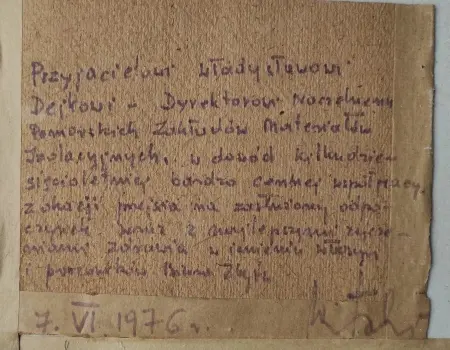 Przyjacielowi Władysławowi
Dejkowi - Dyrektorowi Naczelnemu
Pomorskich Zakładów Materiałów
Izolacyjnych, w dowód kilkudzie-
sięcioletniej bardzo cennej współpracy,
z okazji przejścia na zasłużony odpo-
czynek wraz z najlepszymi życze-
niami zdrowia w imieniu własnym
i pracowników
7. VI 1976 r.